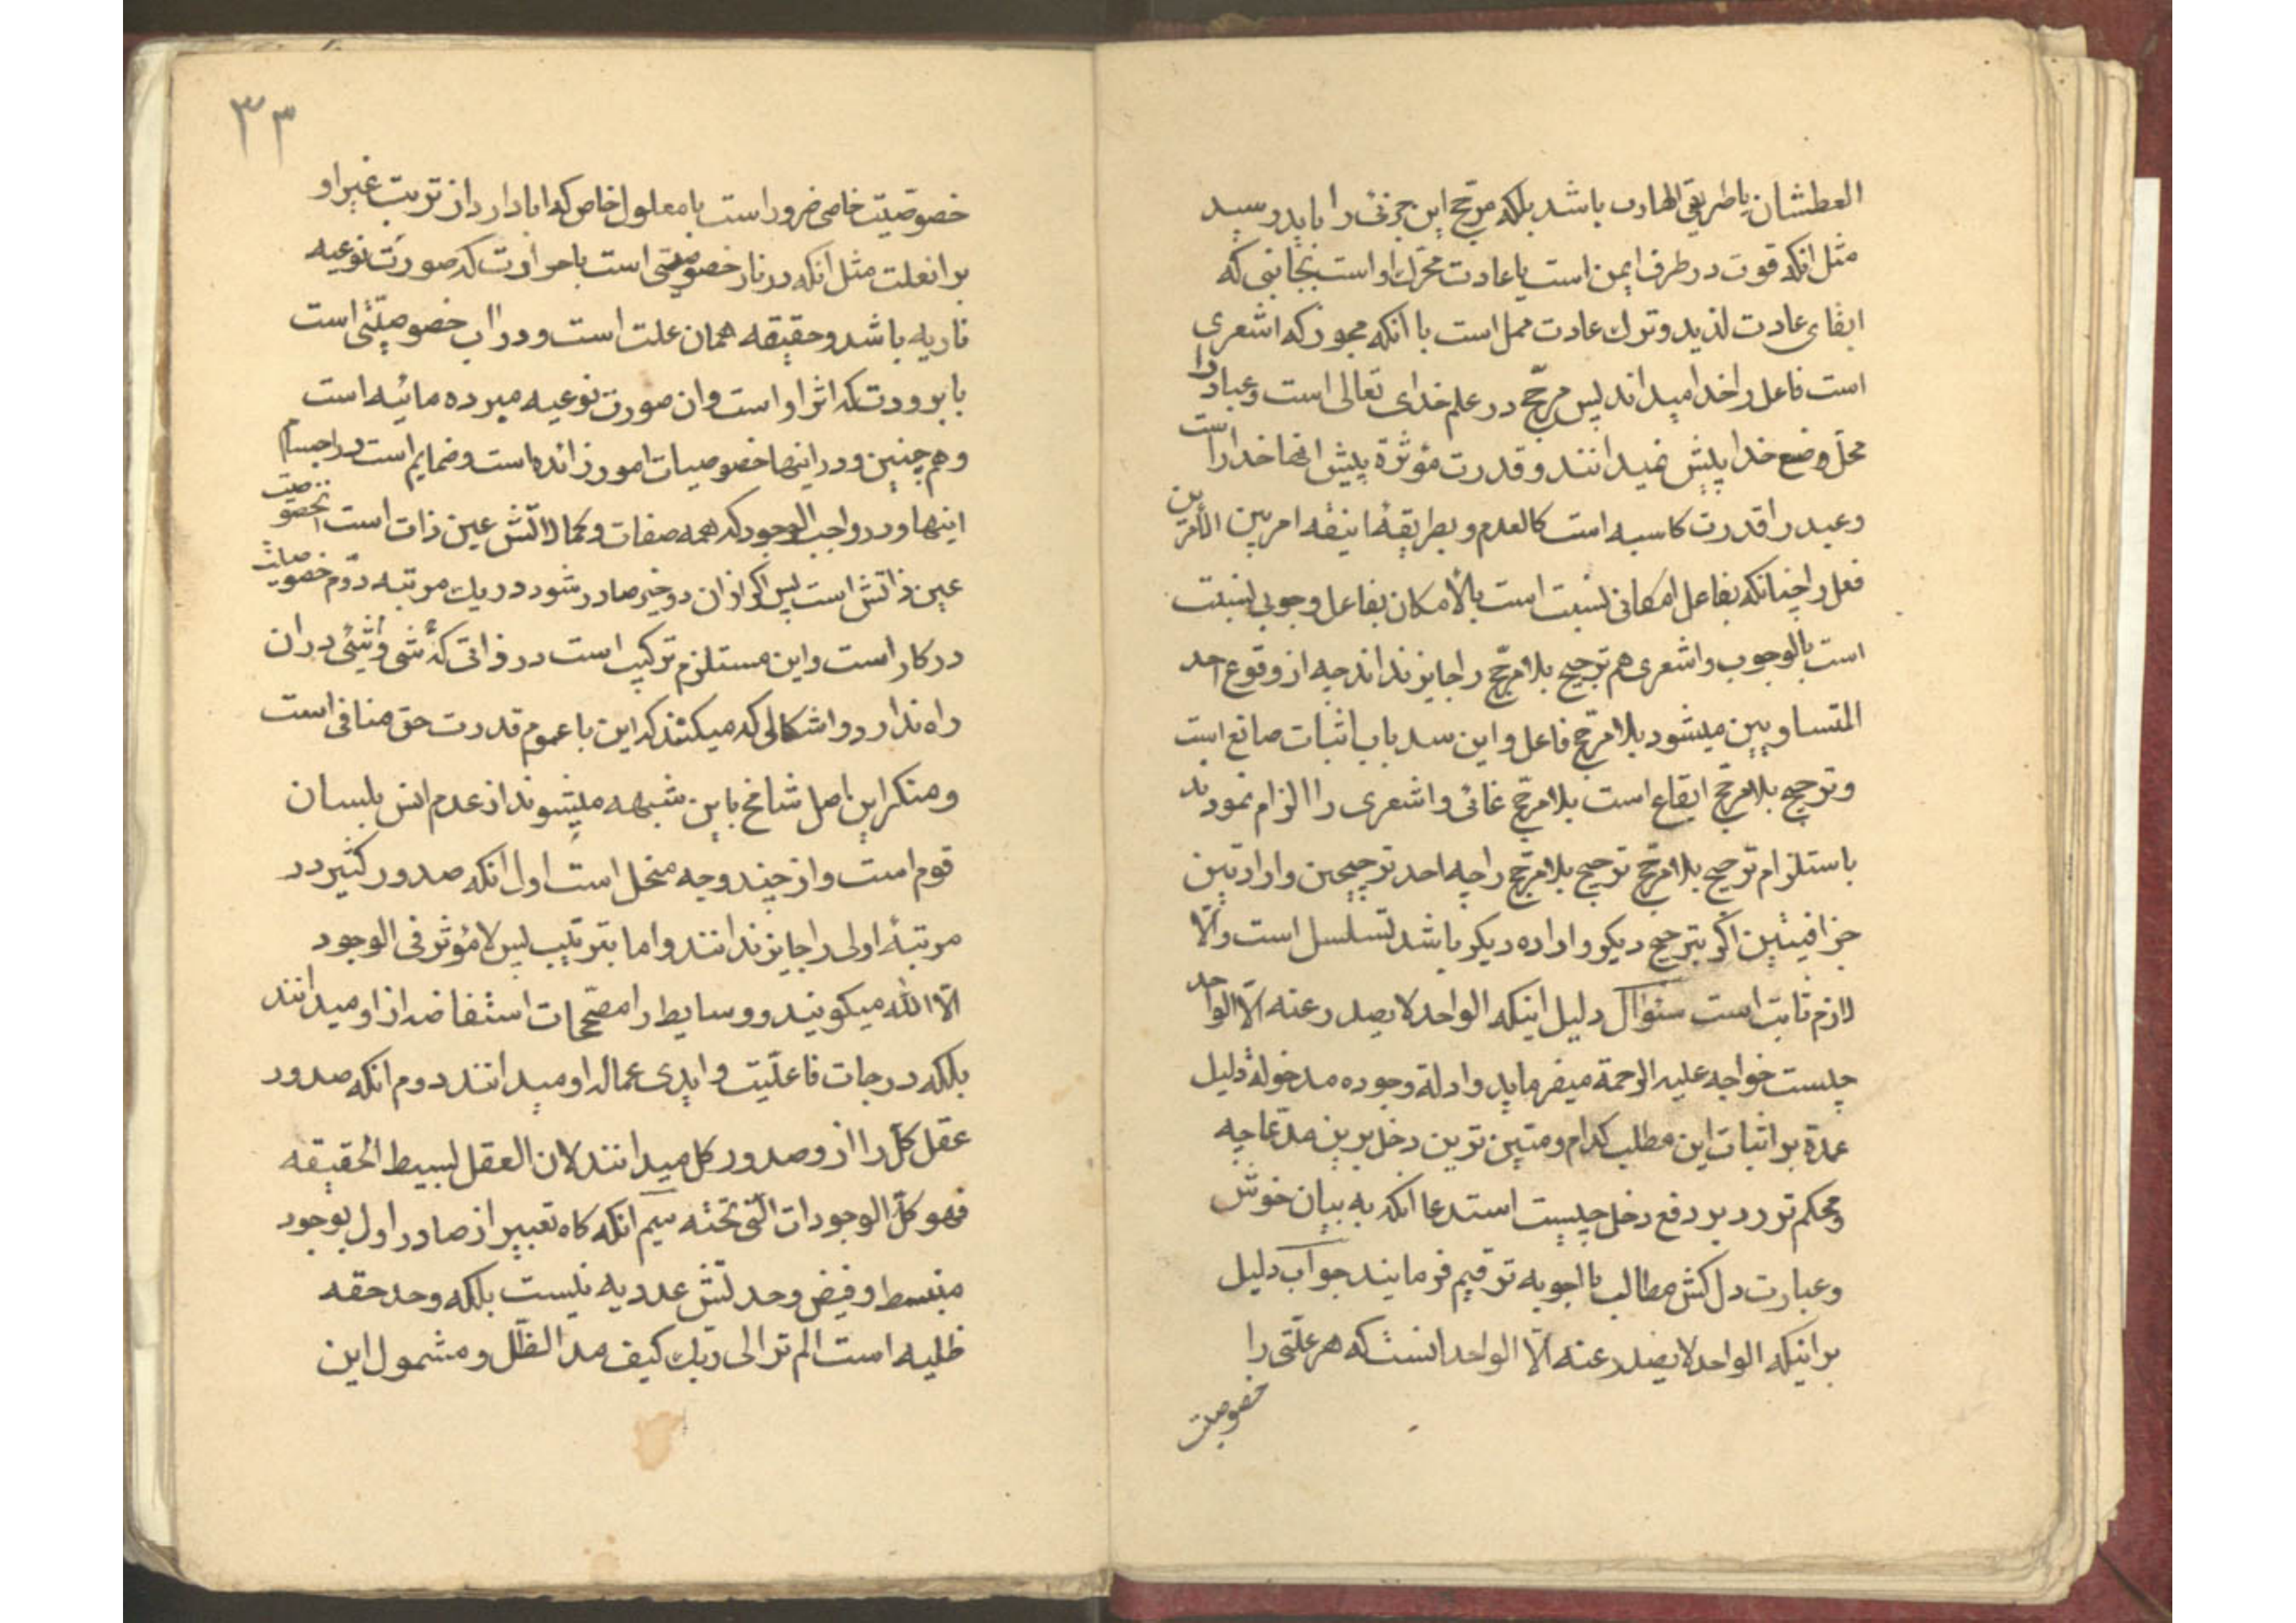 العطشان یا طریقی الهارب باشد بلکه مرجّح این جزئی را باید رسید
مثل انکه قوت در طرف ایمن است یا عادت محرّک او است بجانبی که
ابقای عادت لذید و ترك عادت ممل است با انکه مجوز که اشعری
است فاعل را خدا میداند پس مرجّح در علم خدای تعالی است و عباد را
محلّ وضع خدا پیش نمیدانند و قدرت مؤثرة پیش انها خدا راست
و عبد را قدرت کاسبه است کالعدم و بطریقهٔ انیقه امر بین الأمرین
فعل را چنانکه بفاعل امکانی نسبت است بالأمکان بفاعل وجوبی نسبت
است بالوجوب و اشعری هم ترجیح بلا مرجّح را جایز نداند چه از وقوع احد
المتساویین میشود بلا مرجّح فاعل و این سد باب اثبات صانع است
و ترجیح بلا مرجّح ایقاع است بلا مرجّح غائی و اشعری را الزام نمودند
باستلزام ترجیح بلا مرجّح ترجیح بلا مرجّح را چه احد ترجیحین و ارادتین
جزافیتین اگر بترجیح دیکر و اراده دیکر باشد تسلسل است و الّا
لازم ثابت است سئوال دلیل اینکه الواحد لا یصدر عنه الّا الواحد
چیست خواجه علیه الرحمة میفرماید و ادلة وجوده مدخولة دلیل
عمدة بر اثبات این مطلب کدام و متین ترین دخل برین مدّعا چه
و محکم تر رد بر دفع دخل چیست استدعا انکه به بیان خوش
و عبارت دل کش مطالب بالجوبه ترقیم فرمایند جواب دلیل
بر اینکه الواحد لا یصدر عنه الّا الواحد انست که هر علّتی را
خصوصیت
۳۳
خصوصیّت خاصی ضرور است با معلول خاص که ابا دارد از ترتب غیر او
بر انعلت مثل انکه در نار خصوصیّتی است با حرارت که صورت نوعیه
ناریه باشد و حقیقه همان علت است و در اب خصوصیّتی است
با برودت که اثر او است و ان صورت نوعیه مبرده مائیه است
و هم چنین و در اینها خصوصیات امور زائده است و ضمایم است در اجسام
اینها و در واجب الوجود که همه صفات و کمالاتش عین ذات است خصوصیت
عین ذاتش است پس اگر از ان دو چیز صادر شود در یك مرتبه دوّم خصوصیات
در کار است و این مستلزم ترکیب است در ذاتی که شئ و شئی در ان
راه ندارد و اشکالی که میکنند که این با عموم قدرت حق منافی است
و منکر این اصل شامخ باین شبهه میشوند از عدم انس بلسان
قوم است و از چند وجه منحل است اول انکه صدور کثیر در
مرتبهٔ اولی را جایز ندانند و اما بترتیب پس لا مؤثر فی الوجود
الّا الله میکویند و وسایط را مصحّحات استفاضه از او میدانند
بلکه درجات فاعلیّت و ایدی عماله او میدانند دوم انکه صدور
عقل کلّ را از و صدور کل میدانند لان العقل بسیط الحقیقه
فهو کلّ الوجودات الّتی تحته سیم انکه کاه تعبیر از صادر اول بوجود
منبسط و فیض وحدتش عددیه نیست بلکه وحد حقه
ظلیه است الم تر الی ربّك کیف مدّ الظلّ و مشمول این